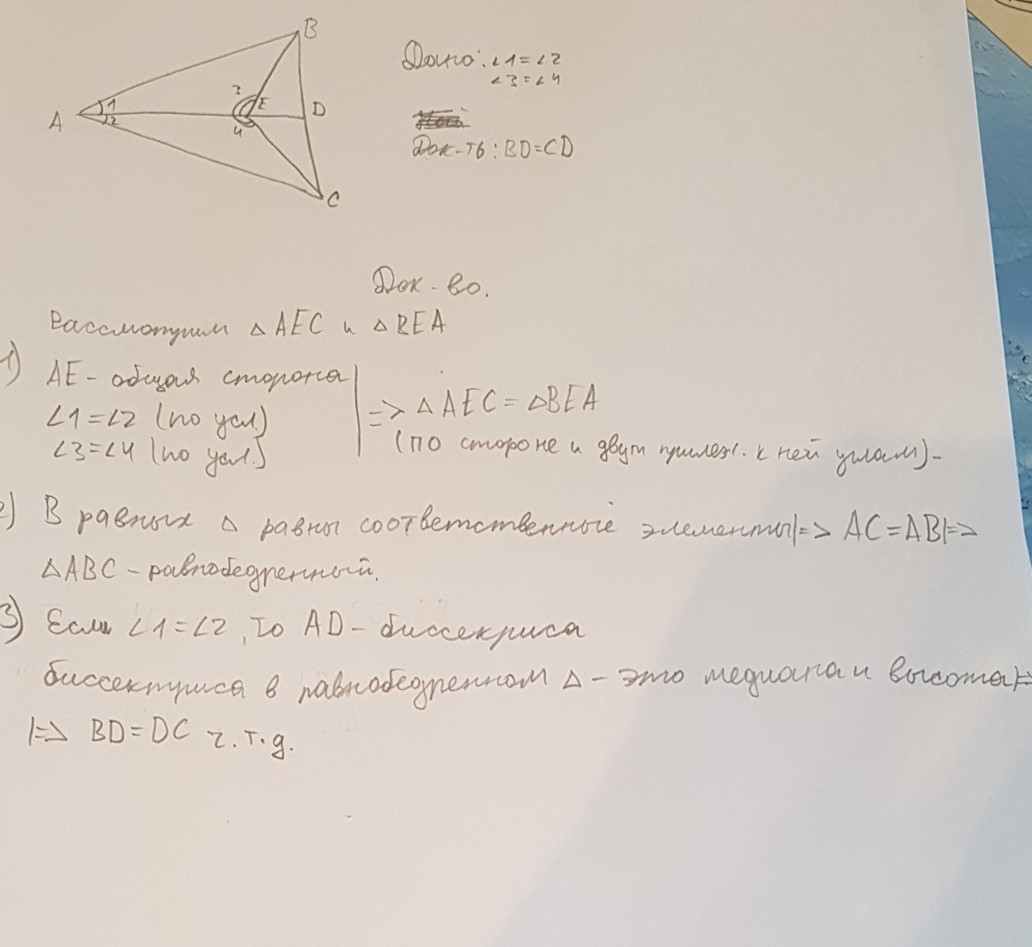 B
Дано: ∠1=∠2
∠3=∠4
3
1
E
D
A
2
4
Док-ть: BD=CD
C
Док-во.
Рассмотрим △AEC и △BEA
1) AE - общая сторона
∠1=∠2 (по усл)
∠3=∠4 (по усл.)
=> △AEC = △BEA
(по стороне и двум прилеж. к ней углам)-
2) В равных △ равны соответственные элементы|=> AC=AB|=>
△ABC - равнобедренный.
3) Если ∠1=∠2, то AD - биссекриса
биссектриса в равнобедренном △ - это медиана и высота|=
|=> BD=DC ч.т.д.